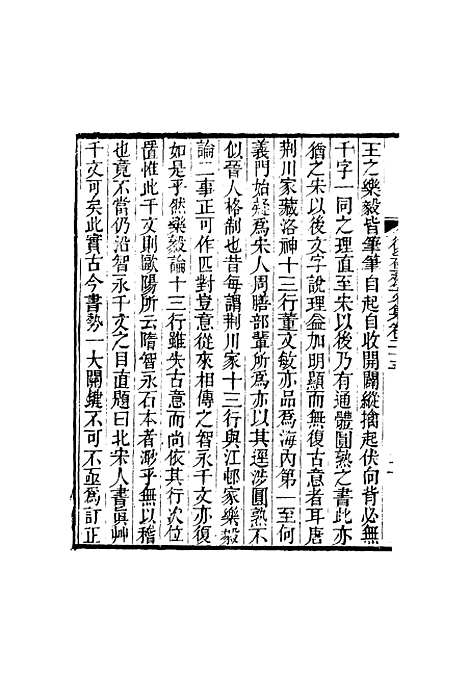 王之樂毅皆筆筆自起自收開闔縱擒起伏向背必無
千字一同之理直至宋以後乃有通體圓熟之書此亦
猶之宋以後文字說理益加明顯而無復古意者耳唐
荆川家藏洛神十三行董文敏亦品爲海內第一至何
義門始疑爲宋人周膳部輩所爲亦以其逕涉圓熟不
似晉人格制也昔每謂荆川家十三行與江邨家樂毅
論二事正可作匹對豈意從來相傳之智永千文亦復
如是乎然樂毅論十三行雖失古意而尚依其行次位
置惟此千文則歐陽所云隋智永石本者渺乎無以稽
也竟不當仍沿智永千文之目直題曰北宋人書眞艸
千文可矣此實古今書勢一大關鍵不可不亟爲訂正